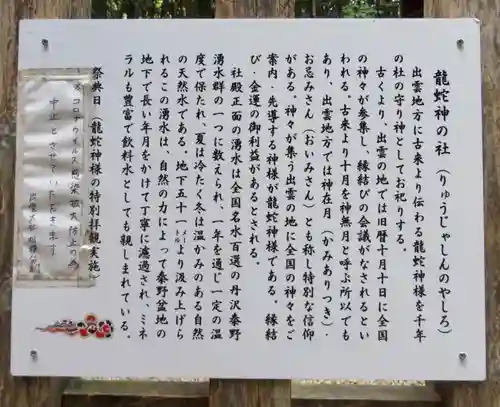 龍蛇神の社（りゅうじゃしんのやしろ）
出雲地方に古来より伝わる龍蛇神様を千年
の社の守り神としてお祀りする。
古くより、出雲の地では旧暦十月十日に全国
の神々が参集し、縁結びの会議がなされるとい
われる。古来より十月を神無月と呼ぶ所以でも
あり、出雲地方では神在月（かみありつき）・
お忌みさん（おいみさん）とも称し特別な信仰
がある。神々が集う出雲の地に全国の神々をご
案内・先導する神様が龍蛇神様である。縁結
び・金運の御利益があるとされる。
社殿正面の湧水は全国名水百選の丹沢秦野
湧水群の一つに数えられ、一年を通じ一定の温
度で保たれ、夏は冷たく冬は温かみのある自然
の天然水である。地下五十一メートルより汲み上げら
れるこの湧水は、自然の力によって秦野盆地の
地下で長い年月をかけて丁寧に濾過され、ミネ
ラルも豊富で飲料水としても親しまれている。
祭典日（龍蛇神様の特別拝観実施）
コロナウイルス感染拡大防止の為
中止とさせていただきます